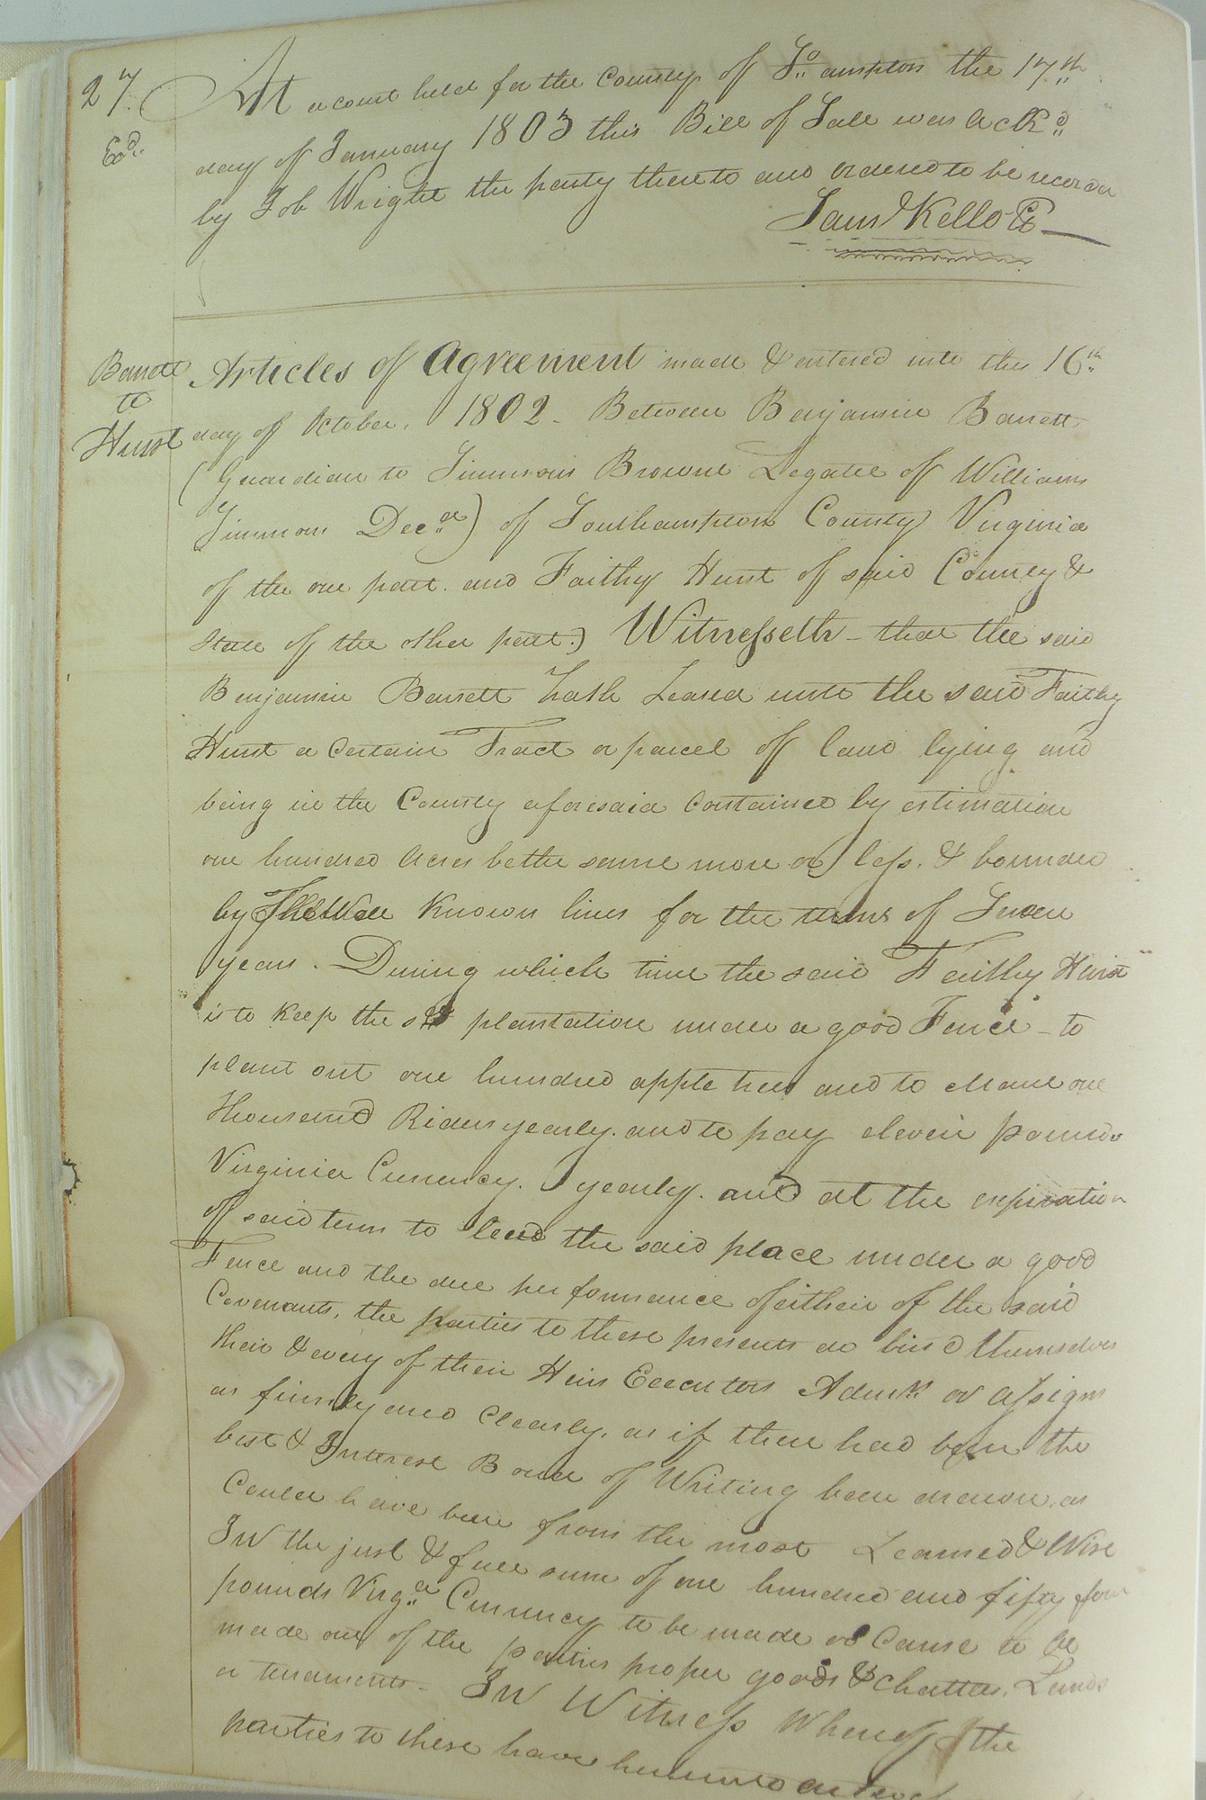 27.
At a court held for the County of So..ampton the 17.th
Exd..
day of January 1803 this Bill of Sale was Ackd
by Job Wright the party thereto and ordered to be recorded
Saml Kello CC
Barrett
to
Hunt
Articles of Agreement made & entered into this 16th
day of October. 1802. Between Benjamin Barrett
(Guardian to Simmons Browne Legatee of Williams
Simmons Decd) of Southampton County Virginia
of the one part. and Faithy Hunt of said County &
State of the other part.) Witnesseth - that the said
Benjamin Barrett hath Leased unto the said Faithy
Hunt a Certain Tract or parcel of land lying and
being in the County aforesaid Contained by estimation
one hundred Acres be the same more or less. & bounded
by The Well Known lines for the term of Seven
years. During which time the said Faithy Hunt
is to keep the sd plantation under a good Fence - to
plant out one hundred apple trees and to one
Thousand yearly. and to pay eleven pounds
Virginia Currency. yearly. and at the expiration
of said term to the said place under a good
Fence and the due performance of either of the said
Covenants, the parties to these presents do bind themselves
their & every of their Heirs Executors Admrs or Assigns
as firmly and Clearly. as if there had been the
best & Bond of Writing been drawn. as
Could have been from the most Learned & Wise
In the just & full sum of one hundred and fifty four
pounds Virga Currency to be made or Cause to be
made out of the parties proper goods & Chattes. Lands
or tenaments - In Witness Whereof the
parties to these have hereunto